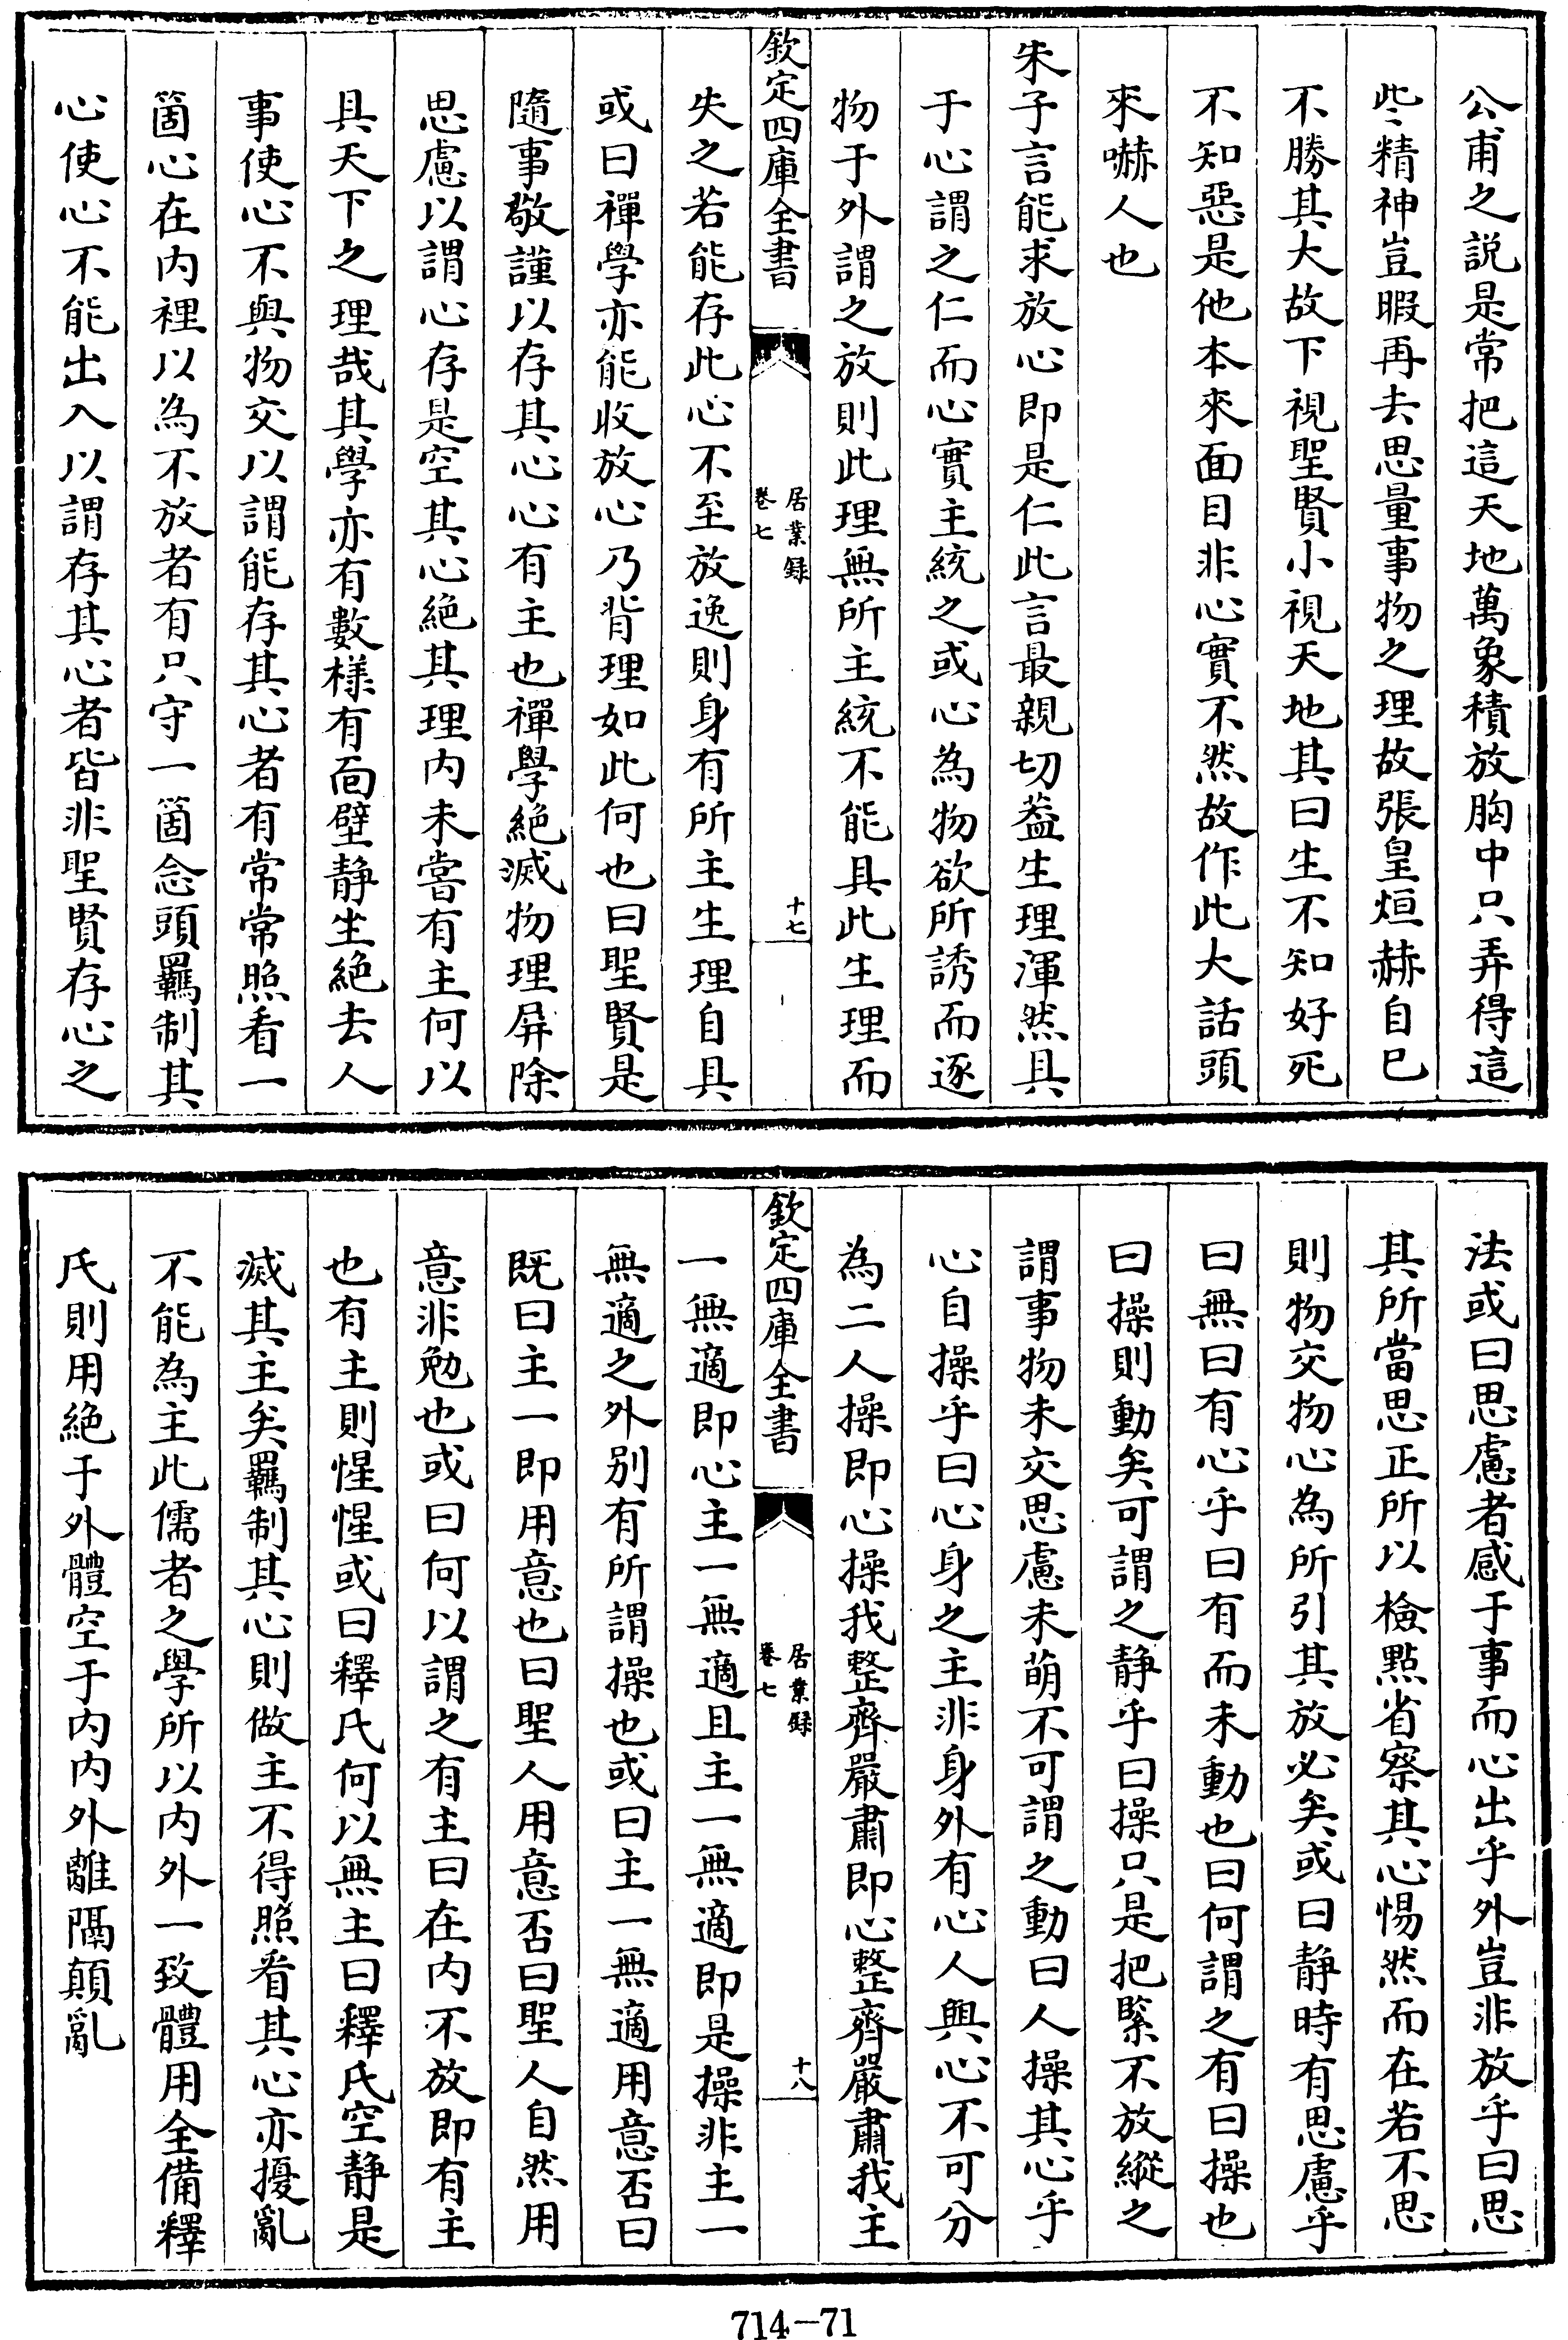 公甫之說是常把這天地萬象積放胸中只弄得這
些精神豈暇再去思量事物之理故張皇烜赫自已
不勝其大故下視聖賢小視天地其曰生不知好死
不知惡是他本來面目非心實不然故作此大話頭
來嚇人也
朱子言能求放心即是仁此言最親切葢生理渾然具
于心謂之仁而心實主統之或心為物欲所誘而逐
物于外謂之放則此理無所主統不能具此生理而
欽定四庫全書
居業録
卷七
十七
失之若能存此心不至放逸則身有所主生理自具
或曰禪學亦能收放心乃背理如此何也曰聖賢是
隨事敬謹以存其心心有主也禪學絶滅物理屏除
思慮以謂心存是空其心絶其理内未嘗有主何以
具天下之理哉其學亦有數樣有面壁静坐絶去人
事使心不與物交以謂能存其心者有常常照看一
箇心在内裡以為不放者有只守一箇念頭羈制其
心使心不能出入以謂存其心者皆非聖賢存心之
法或曰思慮者感于事而心出乎外豈非放乎曰思
其所當思正所以檢點省察其心惕然而在若不思
則物交物心為所引其放必矣或曰静時有思慮乎
曰無曰有心乎曰有而未動也曰何謂之有曰操也
曰操則動矣可謂之静乎曰操只是把緊不放縱之
謂事物未交思慮未萌不可謂之動曰人操其心乎
心自操乎曰心身之主非身外有心人與心不可分
為二人操即心操我整齊嚴肅即心整齊嚴肅我主
欽定四庫全書
居業録
卷七
十八
一無適即心主一無適且主一無適即是操非主一
無適之外别有所謂操也或曰主一無適用意否曰
既曰主一即用意也曰聖人用意否曰聖人自然用
意非勉也或曰何以謂之有主曰在内不放即有主
也有主則惺惺或曰釋氏何以無主曰釋氏空静是
滅其主矣羈制其心則做主不得照看其心亦擾亂
不能為主此儒者之學所以内外一致體用全備釋
氏則用絶于外體空于内内外離隔顛亂
714-71